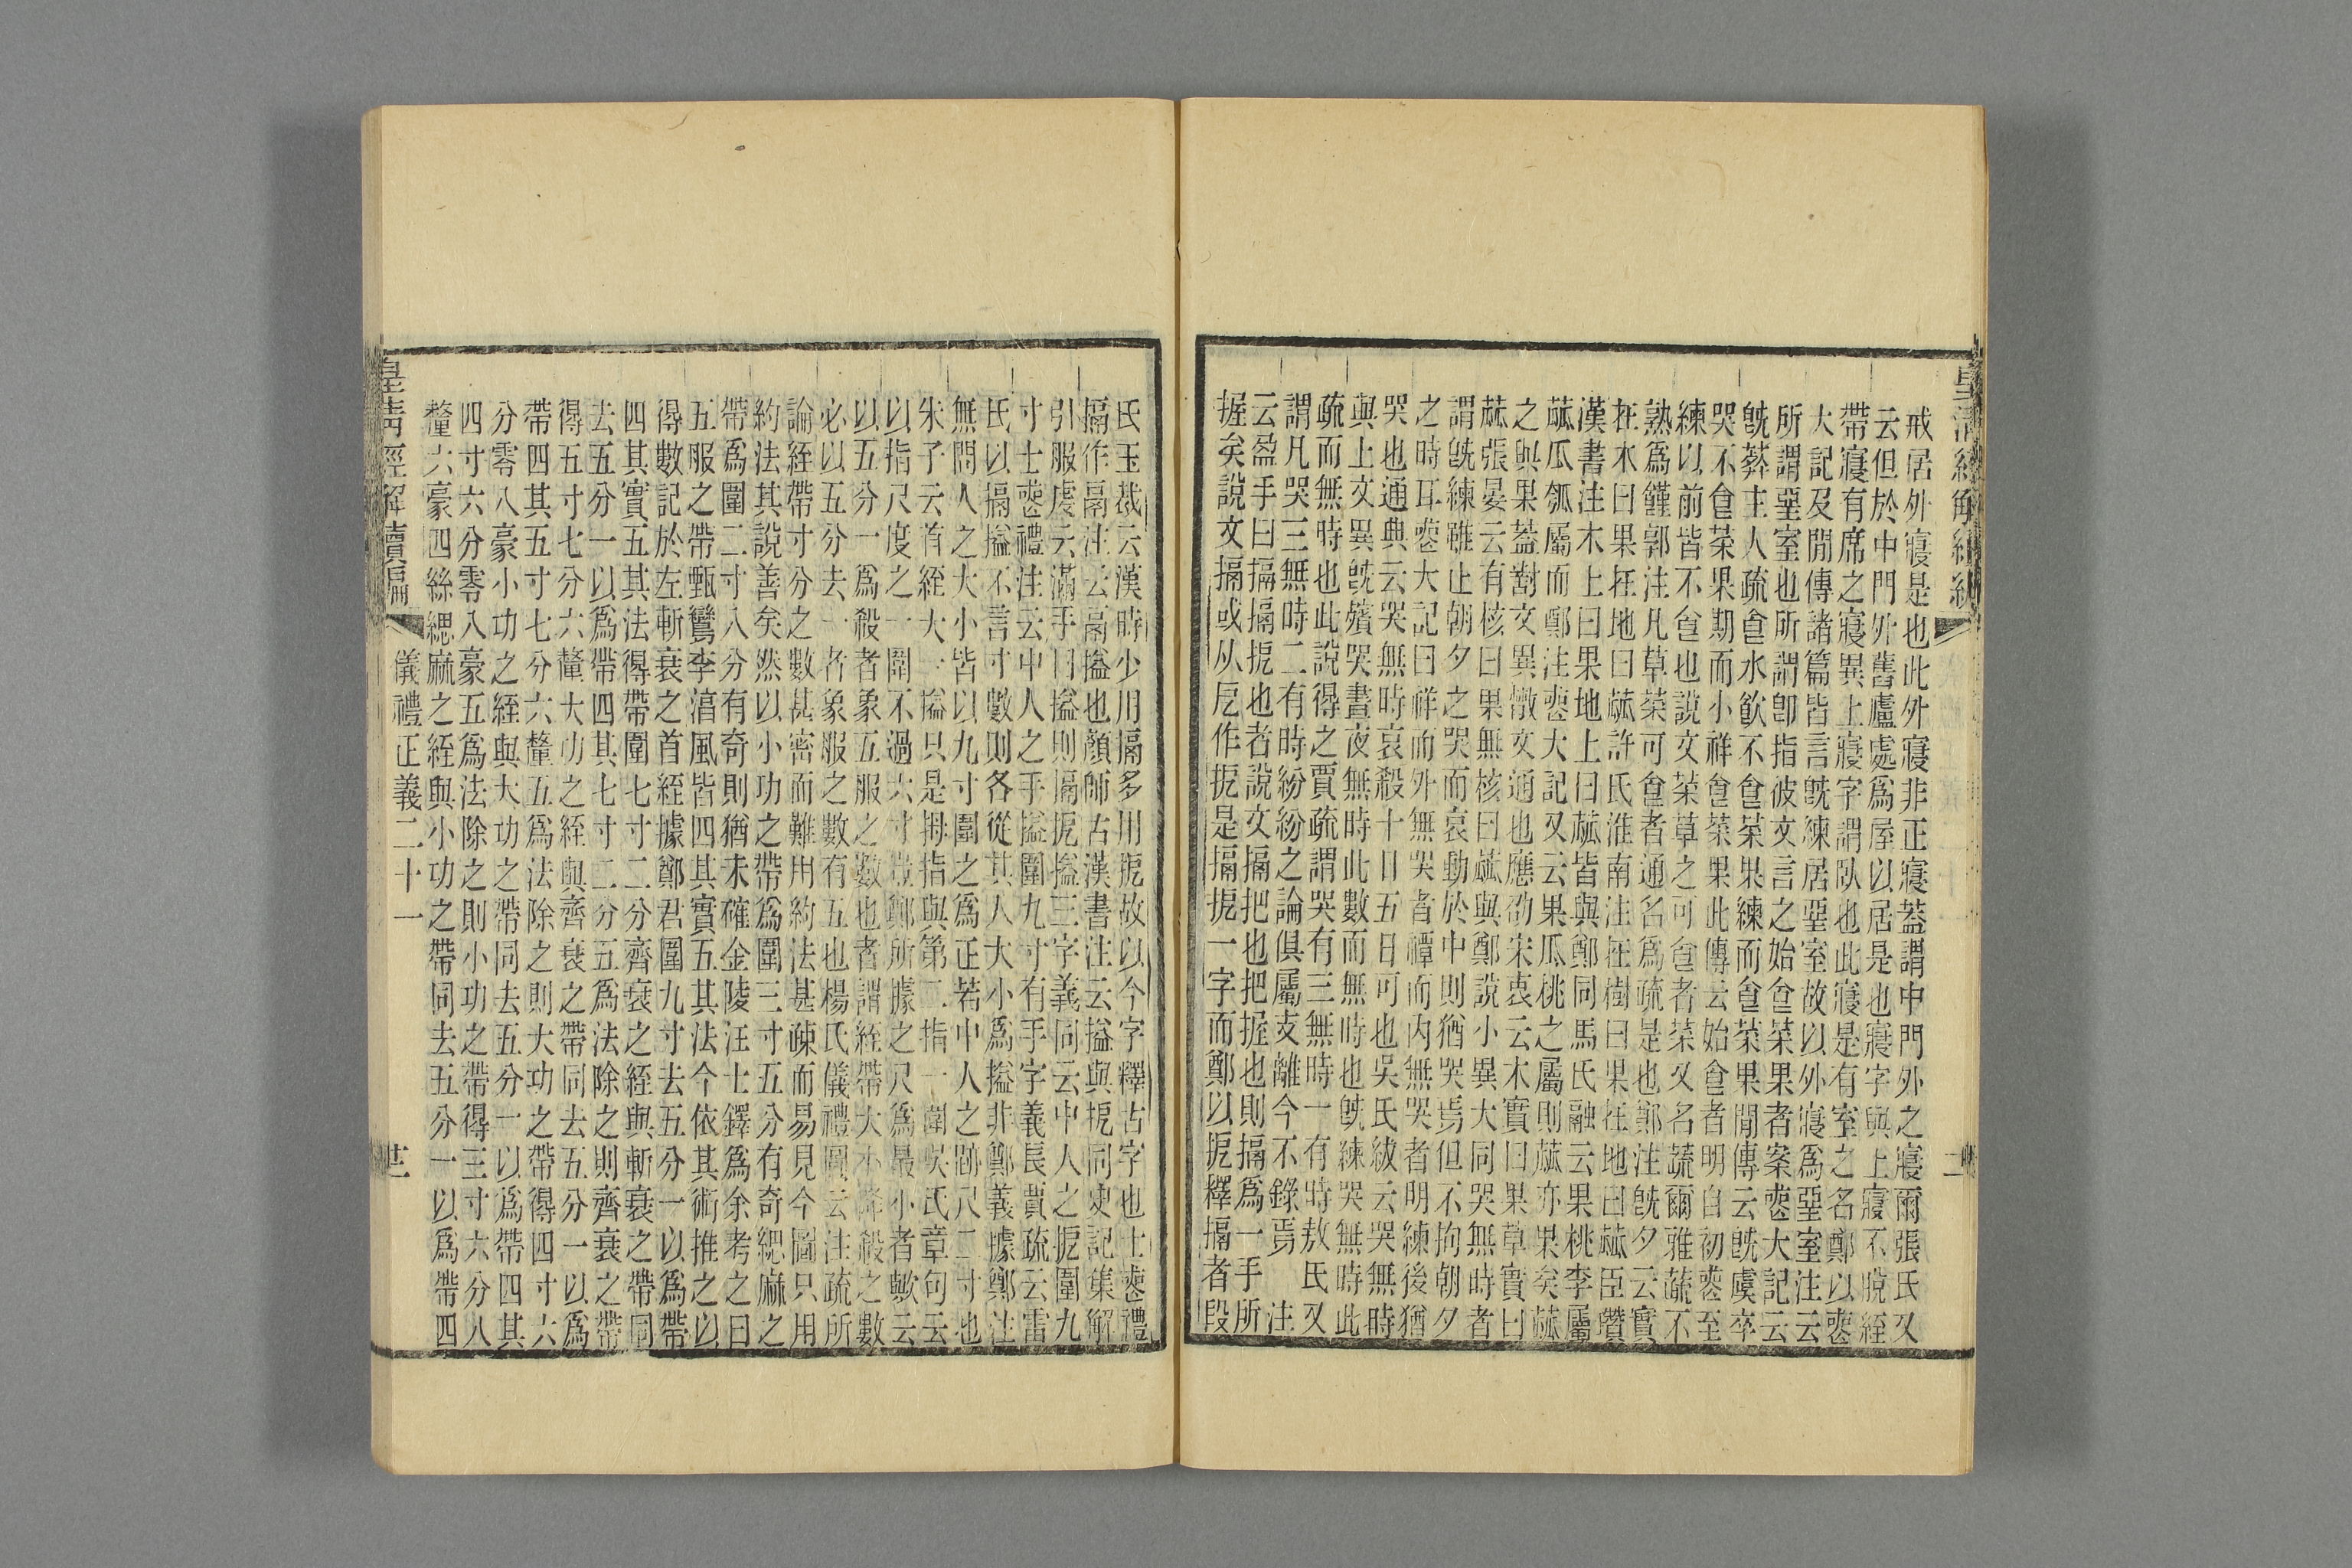 皇清經解續編
戒居外寢是也此外寢非正寢蓋謂中門外之寢爾張氏又
云但於中門外舊廬處爲屋以居是也寢字與上寢不晥絰
帶寢有席之寢異上寢字謂臥也此寢是有室之名鄭以喪
大記及閒傳諸篇皆言旣練居堊室故以外寢爲堊室注云
所謂堊室也所謂卽指彼文言之始食菜果者案喪大記云
旣葬主人疏食水飮不食菜果練而食菜果閒傳云旣虞卒
哭不食菜果期而小祥食菜果此傳云始食者明自初喪至
練以前皆不食也說文菜草之可食者菜又名蔬爾雅蔬不
熟爲饉郭注凡草菜可食者通名爲疏是也鄭注旣夕云實
在木曰果在地曰蓏許氏淮南注在樹曰果在地曰蓏臣瓚
漢書注木上曰果地上曰蓏皆與鄭同馬氏融云果桃李屬
蓏瓜瓠屬而鄭注喪大記又云果瓜桃之屬則蓏亦果矣蓏
之與果蓋對文異散文通也應劭宋衷云木實曰果草實曰
蓏張晏云有核曰果無核曰蓏與鄭說小異大同哭無時者
謂旣練雖止朝夕之哭而哀動於中則猶哭焉但不拘朝夕
之時耳喪大記曰祥而外無哭者禫而内無哭者明練後猶
哭也通典云哭無時哀殺十日五日可也吳氏紱云哭無時
與上文異旣殯哭晝夜無時此數而無時也旣練哭無時此
疏而無時也此說得之賈疏謂哭有三無時一有時敖氏又
謂凡哭三無時二有時紛紛之論俱屬支離今不錄焉　注
云盈手曰搹搹扼也者說文搹把也把握也則搹爲一手所
握矣說文搹或从戹作扼是搹扼一字而鄭以扼釋搹者段
氏玉裁云漢時少用搹多用扼故以今字釋古字也士喪禮
搹作鬲注云鬲搤也顏師古漢書注云搤與扼同史記集解
引服虔云滿手曰搤則搹扼搤三字義同云中人之扼圍九
寸士喪禮注云中人之手搤圍九寸有手字義長賈疏云雷
氏以搹搤不言寸數則各從其人大小爲搤非鄭義據鄭注
無問人之大小皆以九寸圍之爲正若中人之跡尺二寸也
朱子云首絰大一搤只是拇指與第二指一圍吳氏章句云
以指尺度之一圍不過六寸豈鄭所據之尺爲最小者歟云
以五分一爲殺者象五服之數也者謂絰帶大小降殺之數
必以五分去一者象服之數有五也楊氏儀禮圖云注疏所
論絰帶寸分之數甚密而難用約法甚疎而易見今圖只用
約法其說善矣然以小功之帶爲圍三寸五分有奇緦麻之
帶爲圍二寸八分有奇則猶未確金陵汪士鐸爲余考之曰
五服之帶甄鸞李淳風皆四其實五其法今依其術推之以
得數記於左斬衰之首絰據鄭君圍九寸去五分一以爲帶
四其實五其法得帶圍七寸二分齊衰之絰與斬衰之帶同
去五分一以爲帶四其七寸二分五爲法除之則齊衰之帶
得五寸七分六釐大功之絰與齊衰之帶同去五分一以爲
帶四其五寸七分六釐五爲法除之則大功之帶得四寸六
分零八豪小功之絰與大功之帶同去五分一以爲帶四其
四寸六分零八豪五爲法除之則小功之帶得三寸六分八
釐六豪四絲緦麻之絰與小功之帶同去五分一以爲帶四
皇淸經解續編　儀禮正義二十一